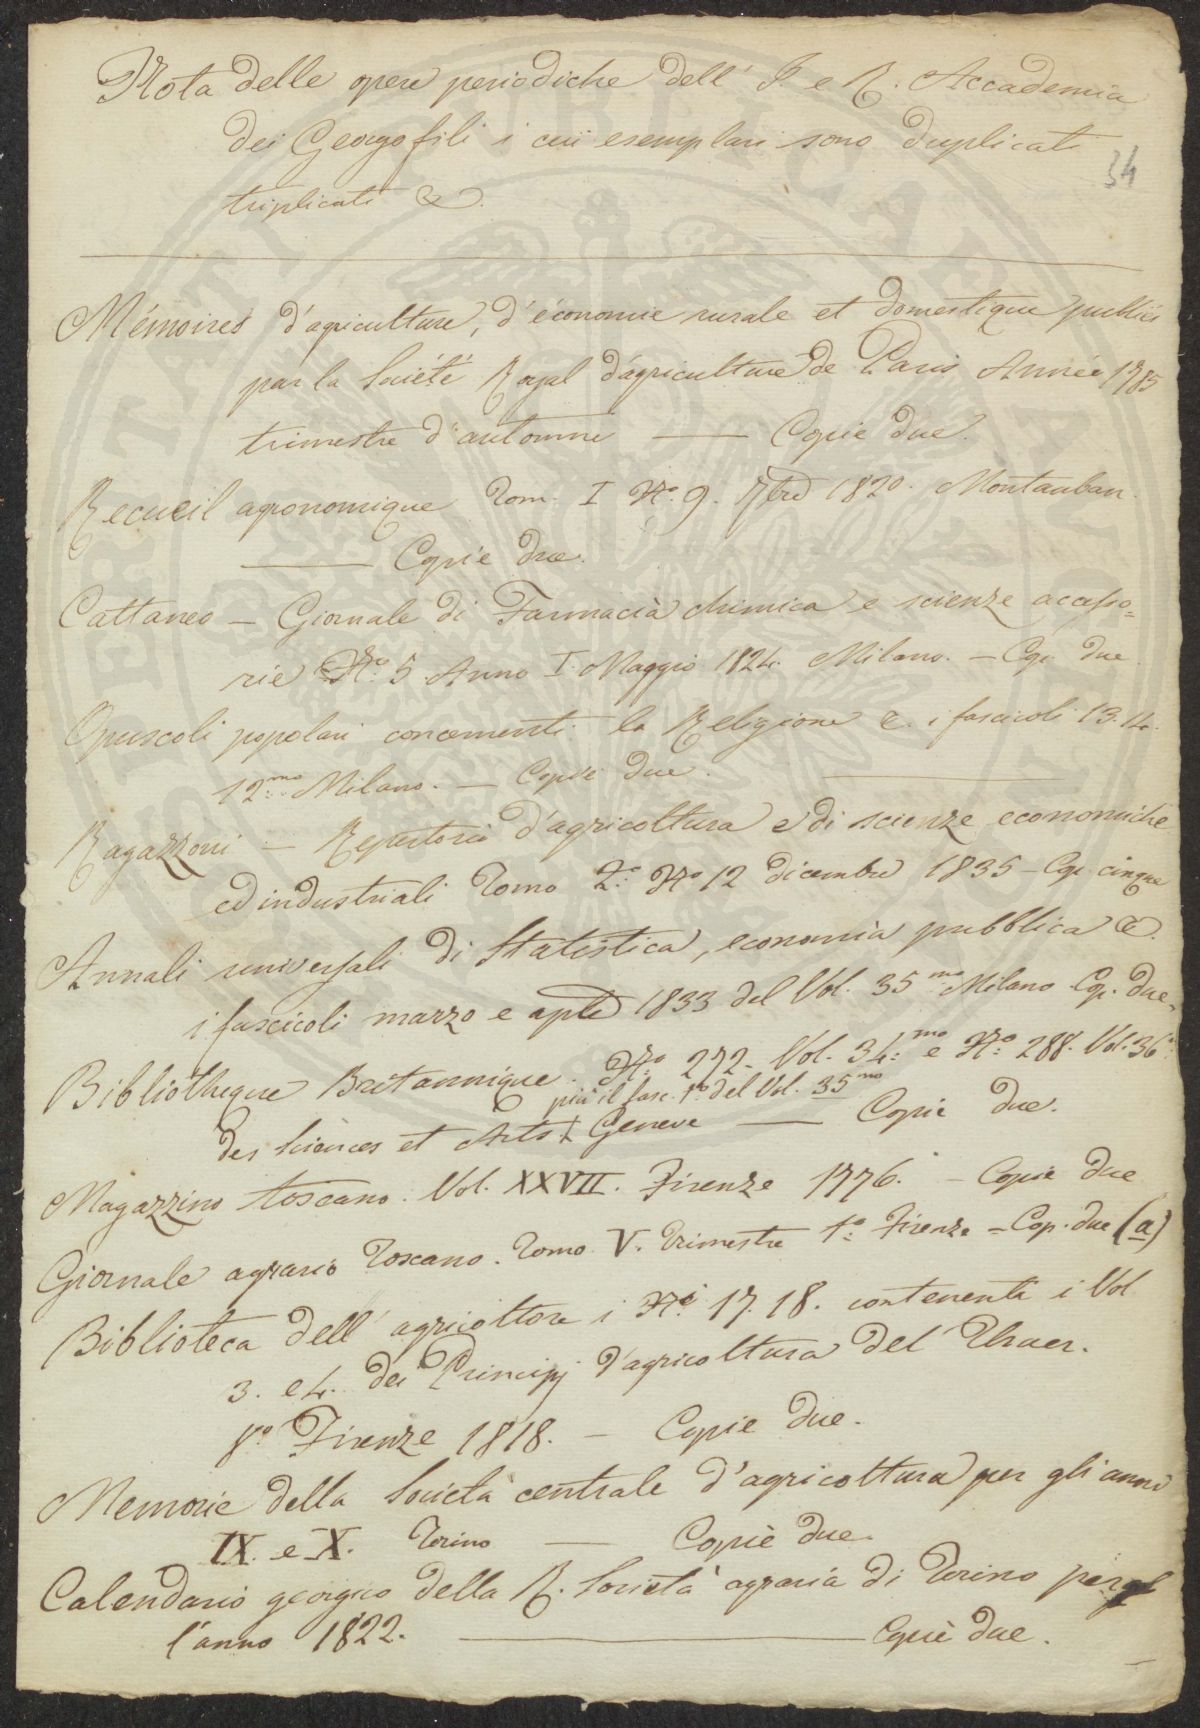 Nota delle opere periodiche dell' I. e R. Accademia
dei Georgofili i cui esemplari sono duplicati
34
triplicati &.
Mémoires d'agriculture, d'économie rurale et domestique publiés
par la Société Royal d'agriculture de Paris Année 1785
trimestre d'automne — Copie due.
Recueil agronomique Tom. I N.o 9. 7bre 1820. Montauban.
— Copie due.
Cattaneo — Giornale di Farmacia chimica e scienze accesso=
rie N.o 5 Anno I. Maggio 1824. Milano. — Cop. due.
Opuscoli popolari concernenti la Religione &. i fascicoli 13.14.
12.mo Milano. — Copie due.
Ragazzoni — Repertorio d'agricoltura e di scienze economiche
ed industriali Tomo 2.o N.o 12 dicembre 1835 — Cop. cinque
Annali universali di Statistica, economia pubblica &.
i fascicoli marzo e aple 1833 del Vol. 35.mo Milano Cop. due.
Bibliotheque Britannique. N.o 272. Vol. 34.mo e N.o 288. Vol. 36.o
più il fasc. 1.o del Vol. 35.mo
des Sciences et Arts + Geneve — Copie due.
Magazzino toscano. Vol. XXVII. Firenze 1776. — Copie due
Giornale agrario Toscano. Tomo V. Trimestre 1.o Firenze = Cop. due (a)
Biblioteca dell' agricoltore i N.i 17. 18. contenenti i Vol
3. e 4. dei Principj d'agricoltura del Thaer.
8.o Firenze 1818. — Copie due.
Memorie della Società centrale d'agricoltura per gli anni
IX. e X. Torino — Copie due.
Calendario georgico della R. Società agraria di Torino per
l'anno 1822. — Copie due.